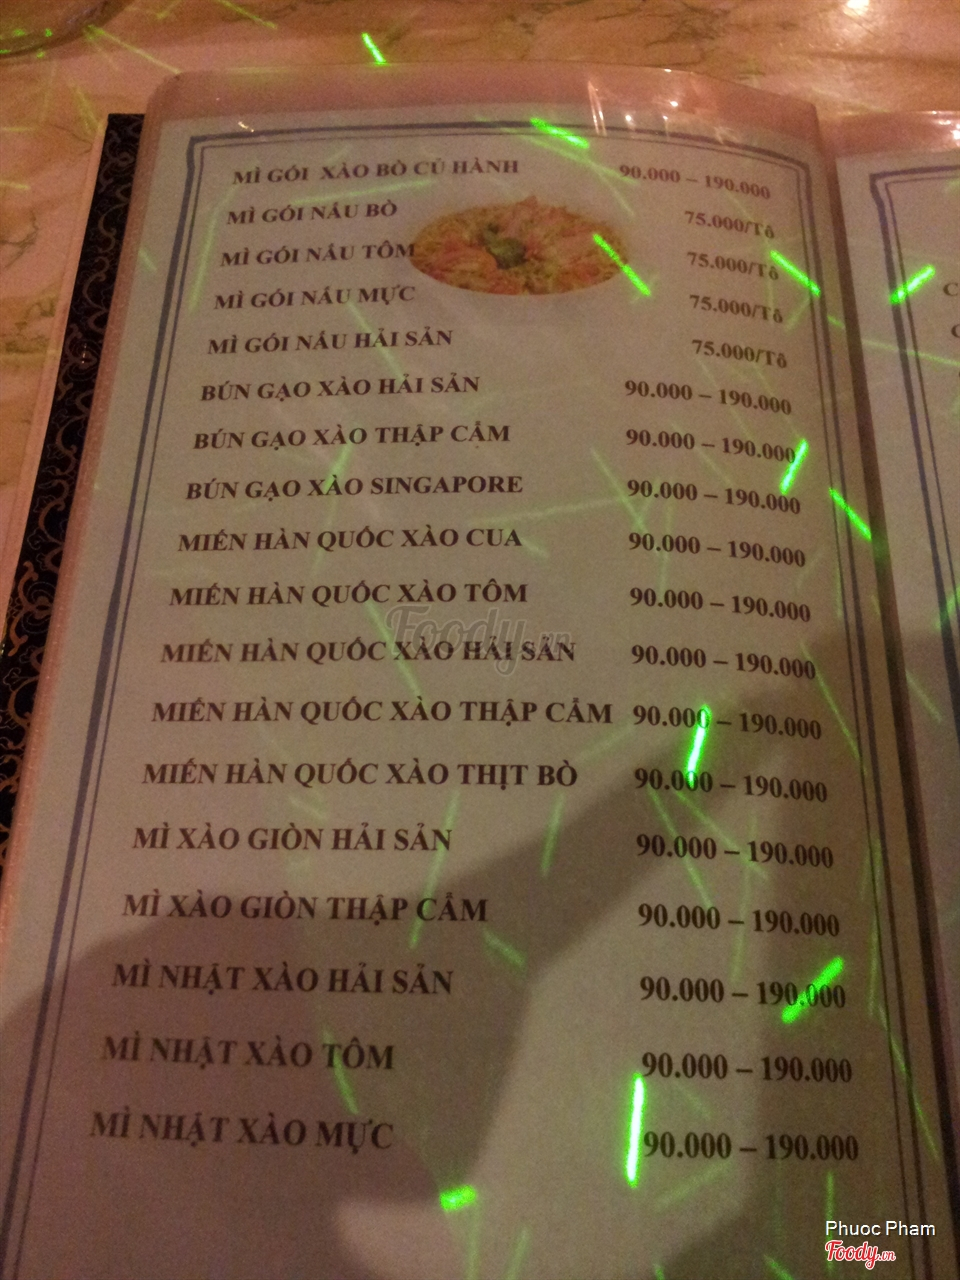 MÌ GÓI XÀO BÒ CỦ HÀNH 90.000 – 190.000
MÌ GÓI NẤU BÒ 75.000/Tô
MÌ GÓI NẤU TÔM 75.000/Tô
MÌ GÓI NẤU MỰC 75.000/Tô
MÌ GÓI NẤU HẢI SẢN 75.000/Tô
BÚN GẠO XÀO HẢI SẢN 90.000 – 190.000
BÚN GẠO XÀO THẬP CẨM 90.000 – 190.000
BÚN GẠO XÀO SINGAPORE 90.000 – 190.000
MIẾN HÀN QUỐC XÀO CUA 90.000 – 190.000
MIẾN HÀN QUỐC XÀO TÔM 90.000 – 190.000
MIẾN HÀN QUỐC XÀO HẢI SẢN 90.000 – 190.000
MIẾN HÀN QUỐC XÀO THẬP CẨM 90.000 – 190.000
MIẾN HÀN QUỐC XÀO THỊT BÒ 90.000 – 190.000
MÌ XÀO GIÒN HẢI SẢN 90.000 – 190.000
MÌ XÀO GIÒN THẬP CẨM 90.000 – 190.000
MÌ NHẬT XÀO HẢI SẢN 90.000 – 190.000
MÌ NHẬT XÀO TÔM 90.000 – 190.000
MÌ NHẬT XÀO MỰC 90.000 – 190.000
Foody.vn
Phuoc Pham
Foody.vn